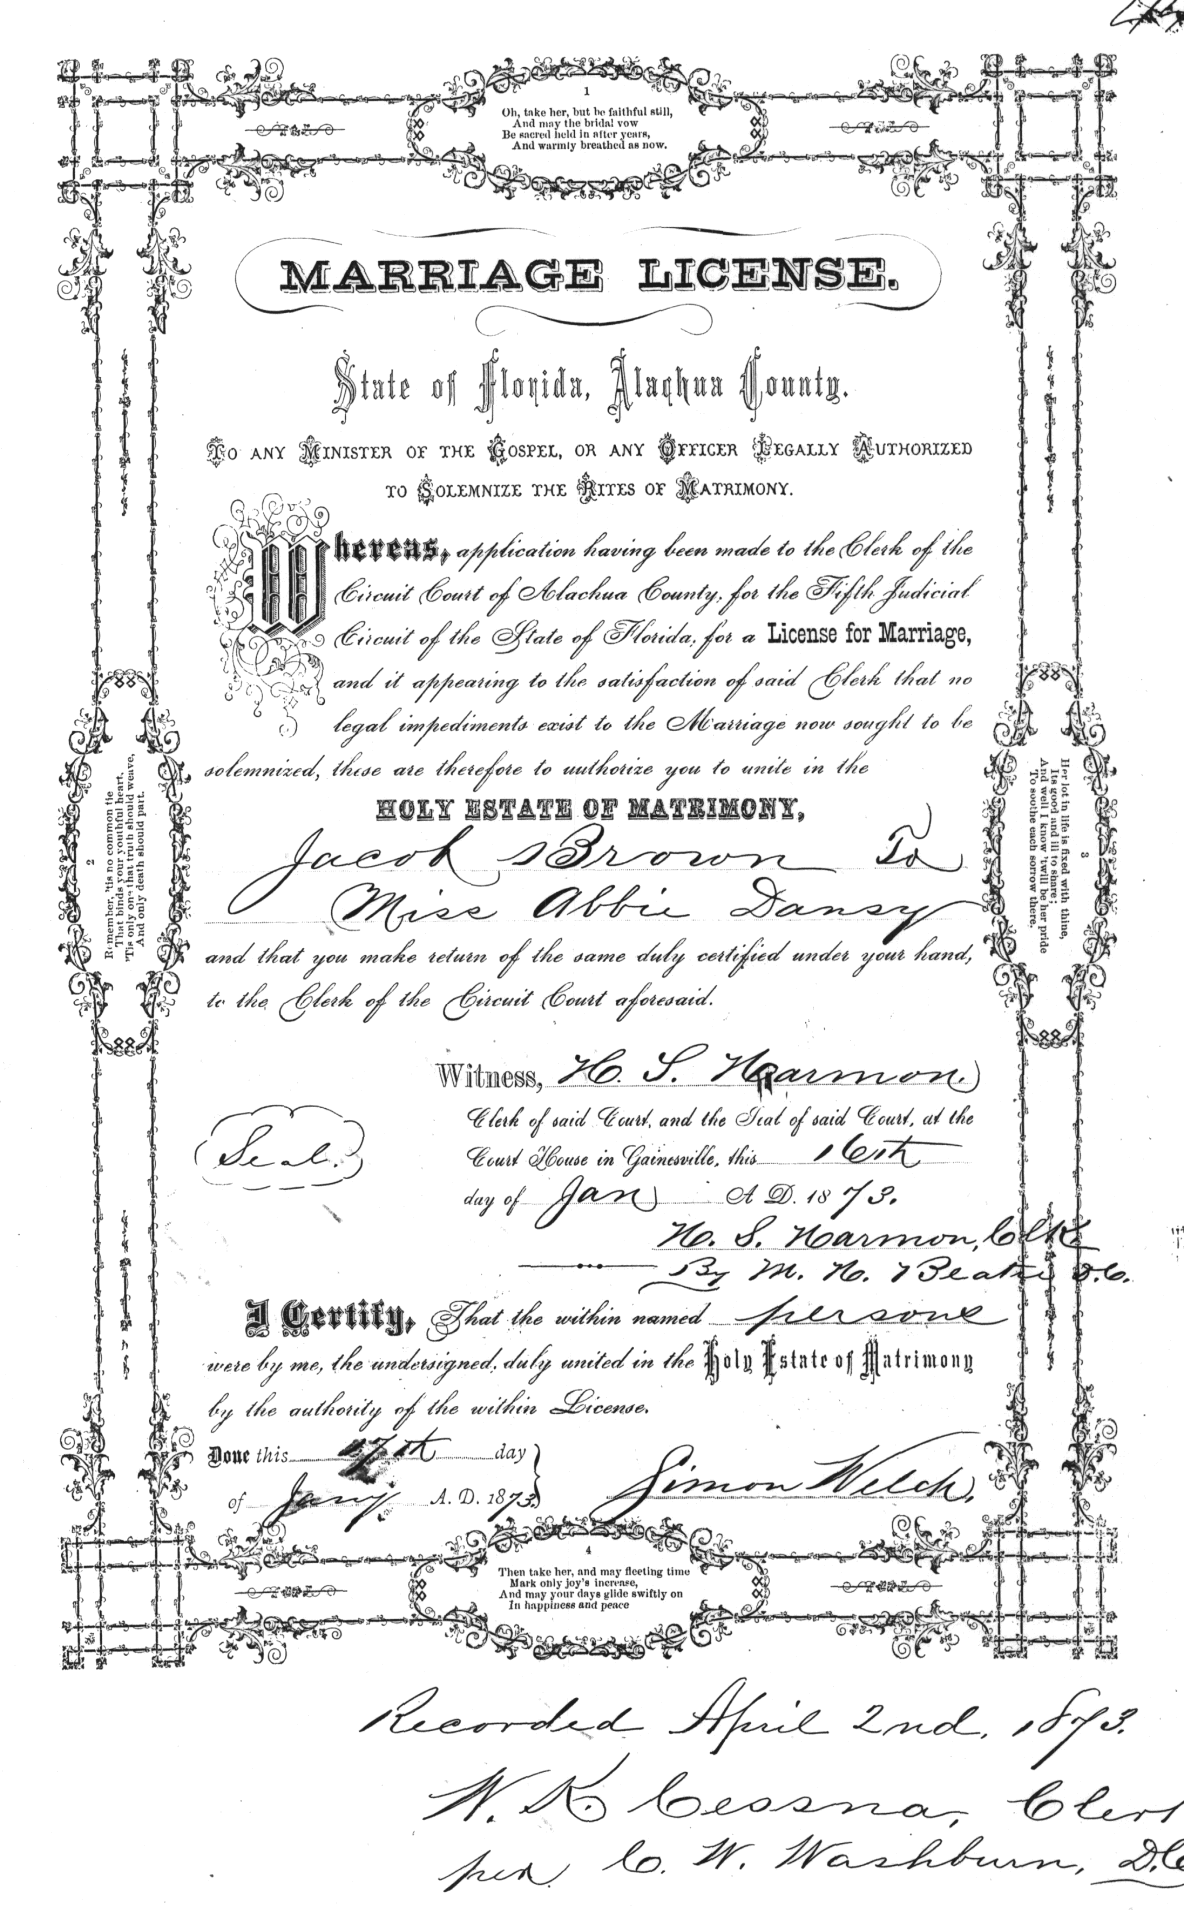 1
Oh, take her, but be faithful still,
And may the bridal vow
Be sacred held in after years,
And warmly breathed as now.
MARRIAGE LICENSE.
State of Florida, Alachua County.
To any Minister of the Gospel, or any Officer Legally Authorized
to Solemnize the Rites of Matrimony.
Whereas, application having been made to the Clerk of the
Circuit Court of Alachua County, for the Fifth Judicial
Circuit of the State of Florida, for a License for Marriage,
and it appearing to the satisfaction of said Clerk that no
legal impediments exist to the Marriage now sought to be
solemnized, these are therefore to authorize you to unite in the
HOLY ESTATE OF MATRIMONY,
Jacob Brown To
Miss Abbie Dansy
and that you make return of the same duly certified under your hand,
to the Clerk of the Circuit Court aforesaid.
2
Remember, 'tis no common tie
That binds your youthful heart,
'Tis only one that truth should weave,
And only death should part.
3
Her lot in life is fixed with thine,
Its good and ill to share;
And well I know 'twill be her pride
To soothe each sorrow there.
Witness, H. S. Harmon
Clerk of said Court, and the Seal of said Court, at the
Seal.
Court House in Gainesville, this 16th
day of Jan A D. 1873.
H. S. Harmon, Clk
By M. H. D.C.
I Certify, That the within named persons
were by me, the undersigned, duly united in the Holy Estate of Matrimony
by the authority of the within License.
Done this day
of Jany A. D. 1873 Simon Welch.
4
Then take her, and may fleeting time
Mark only joy's increase,
And may your days glide swiftly on
In happiness and peace
Recorded April 2nd, 1873.
W. K. Cessna, Clerk
per C. W. Washburn, D.C